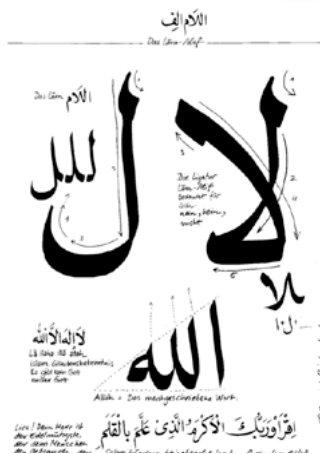 اللام الف
Das Lām-Alif
Das Lām اللام
ل
لا
للل
Die Ligatur
Lām-Alif
bedeutet für
sich
nein, kein,
nicht
لا
لا إله إلا الله
Lā ilaha illā allah
islam. Glaubensbekenntnis
Es gibt kein Gott
außer Gott
الله
Allāh = Das meistgeschriebene Wort.
اقرأ وربك الأكرم الذي علم بالقلم
Lies! Dein Herr ist
der Edelmütigste,
der dem Menschen